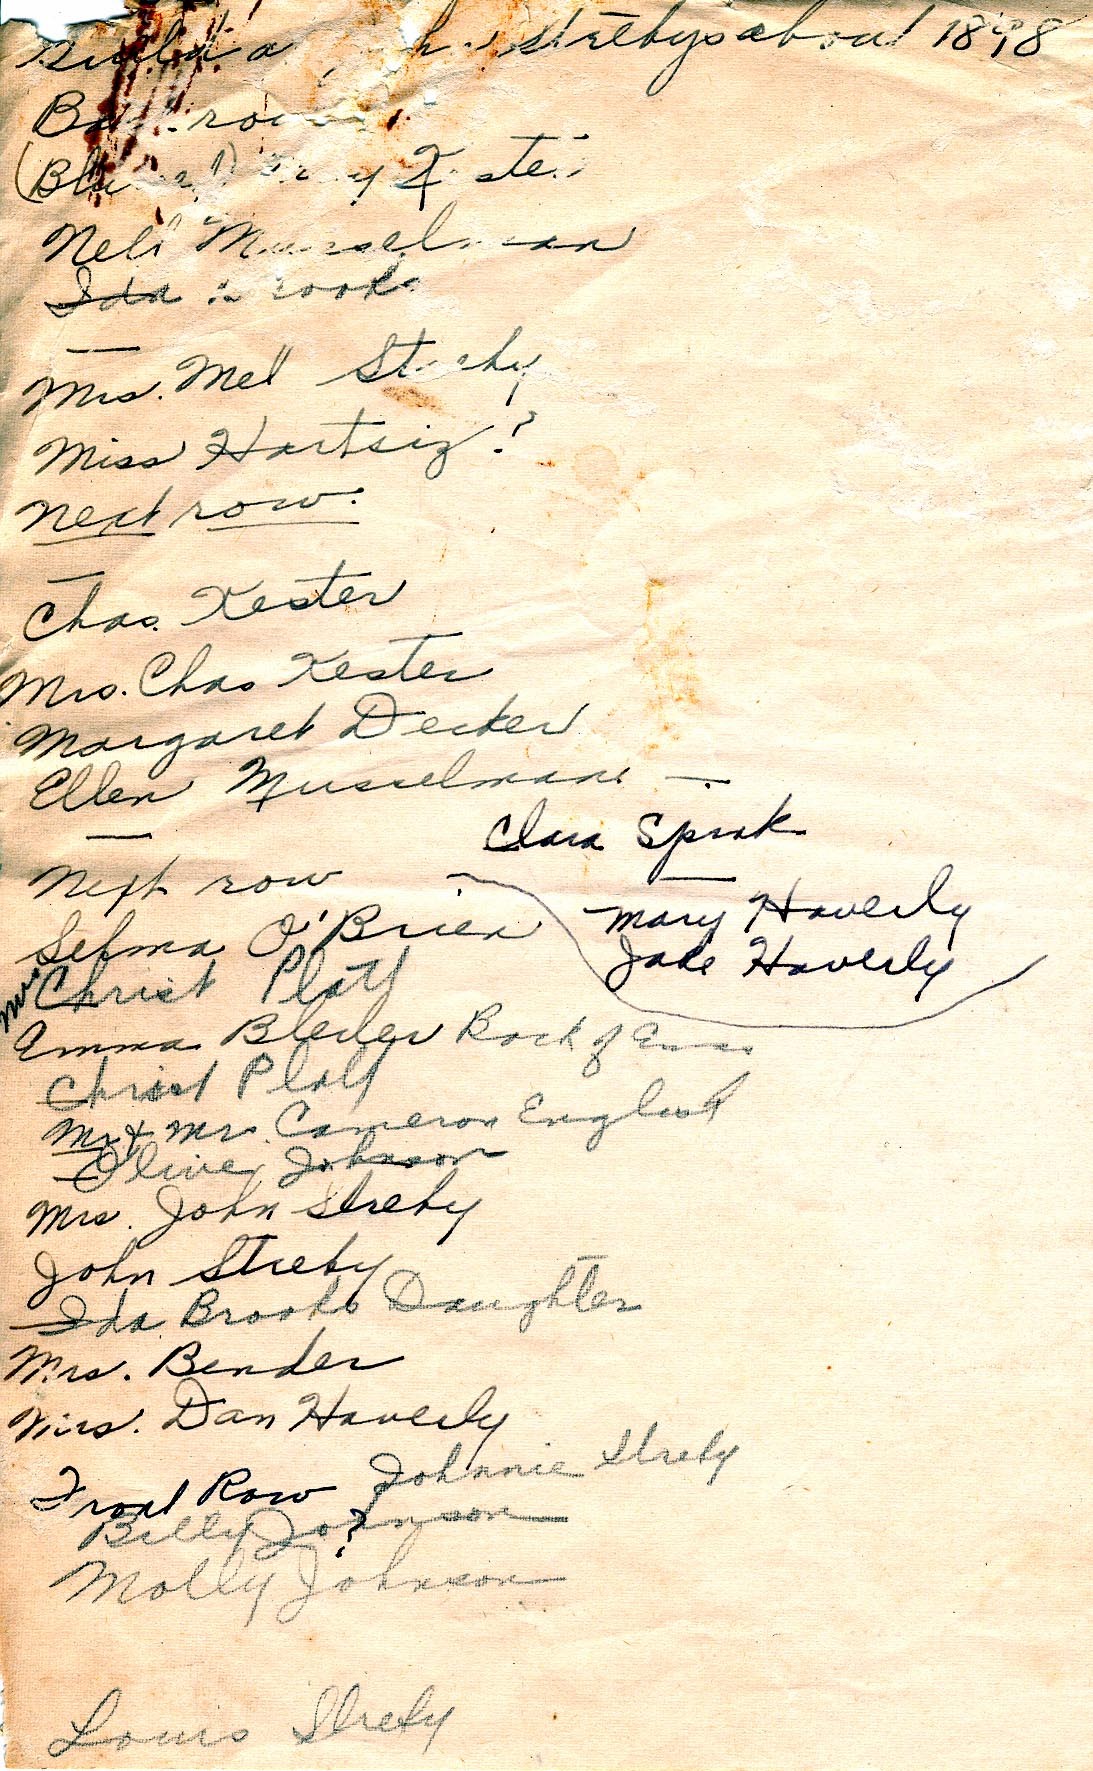 Strebys about 1898
Back row
Kester
Nell Musselman
Ida Brooks
—
Mrs. Mell Streby
Miss Hartsig?
Next row.
—
Chas. Kester
Mrs. Chas Kester
Margaret Decker
Ellen Musselman —
—
Clara Sprak
—
Next row
Mary Haverly
Jake Haverly
Selma O'Brien
Mrs Christ Platt
Emma Bleiler Back of Emma
Christ Platt
Mr & Mrs. Cameron English
Olive Johnson
Mrs. John Streby
John Streby
Ida Brooks Daughter
Mrs. Bender
Mrs. Dan Haverly
Front Row Johnnie Streby
Billy Johnson
?
Molly Johnson
Louis Streby